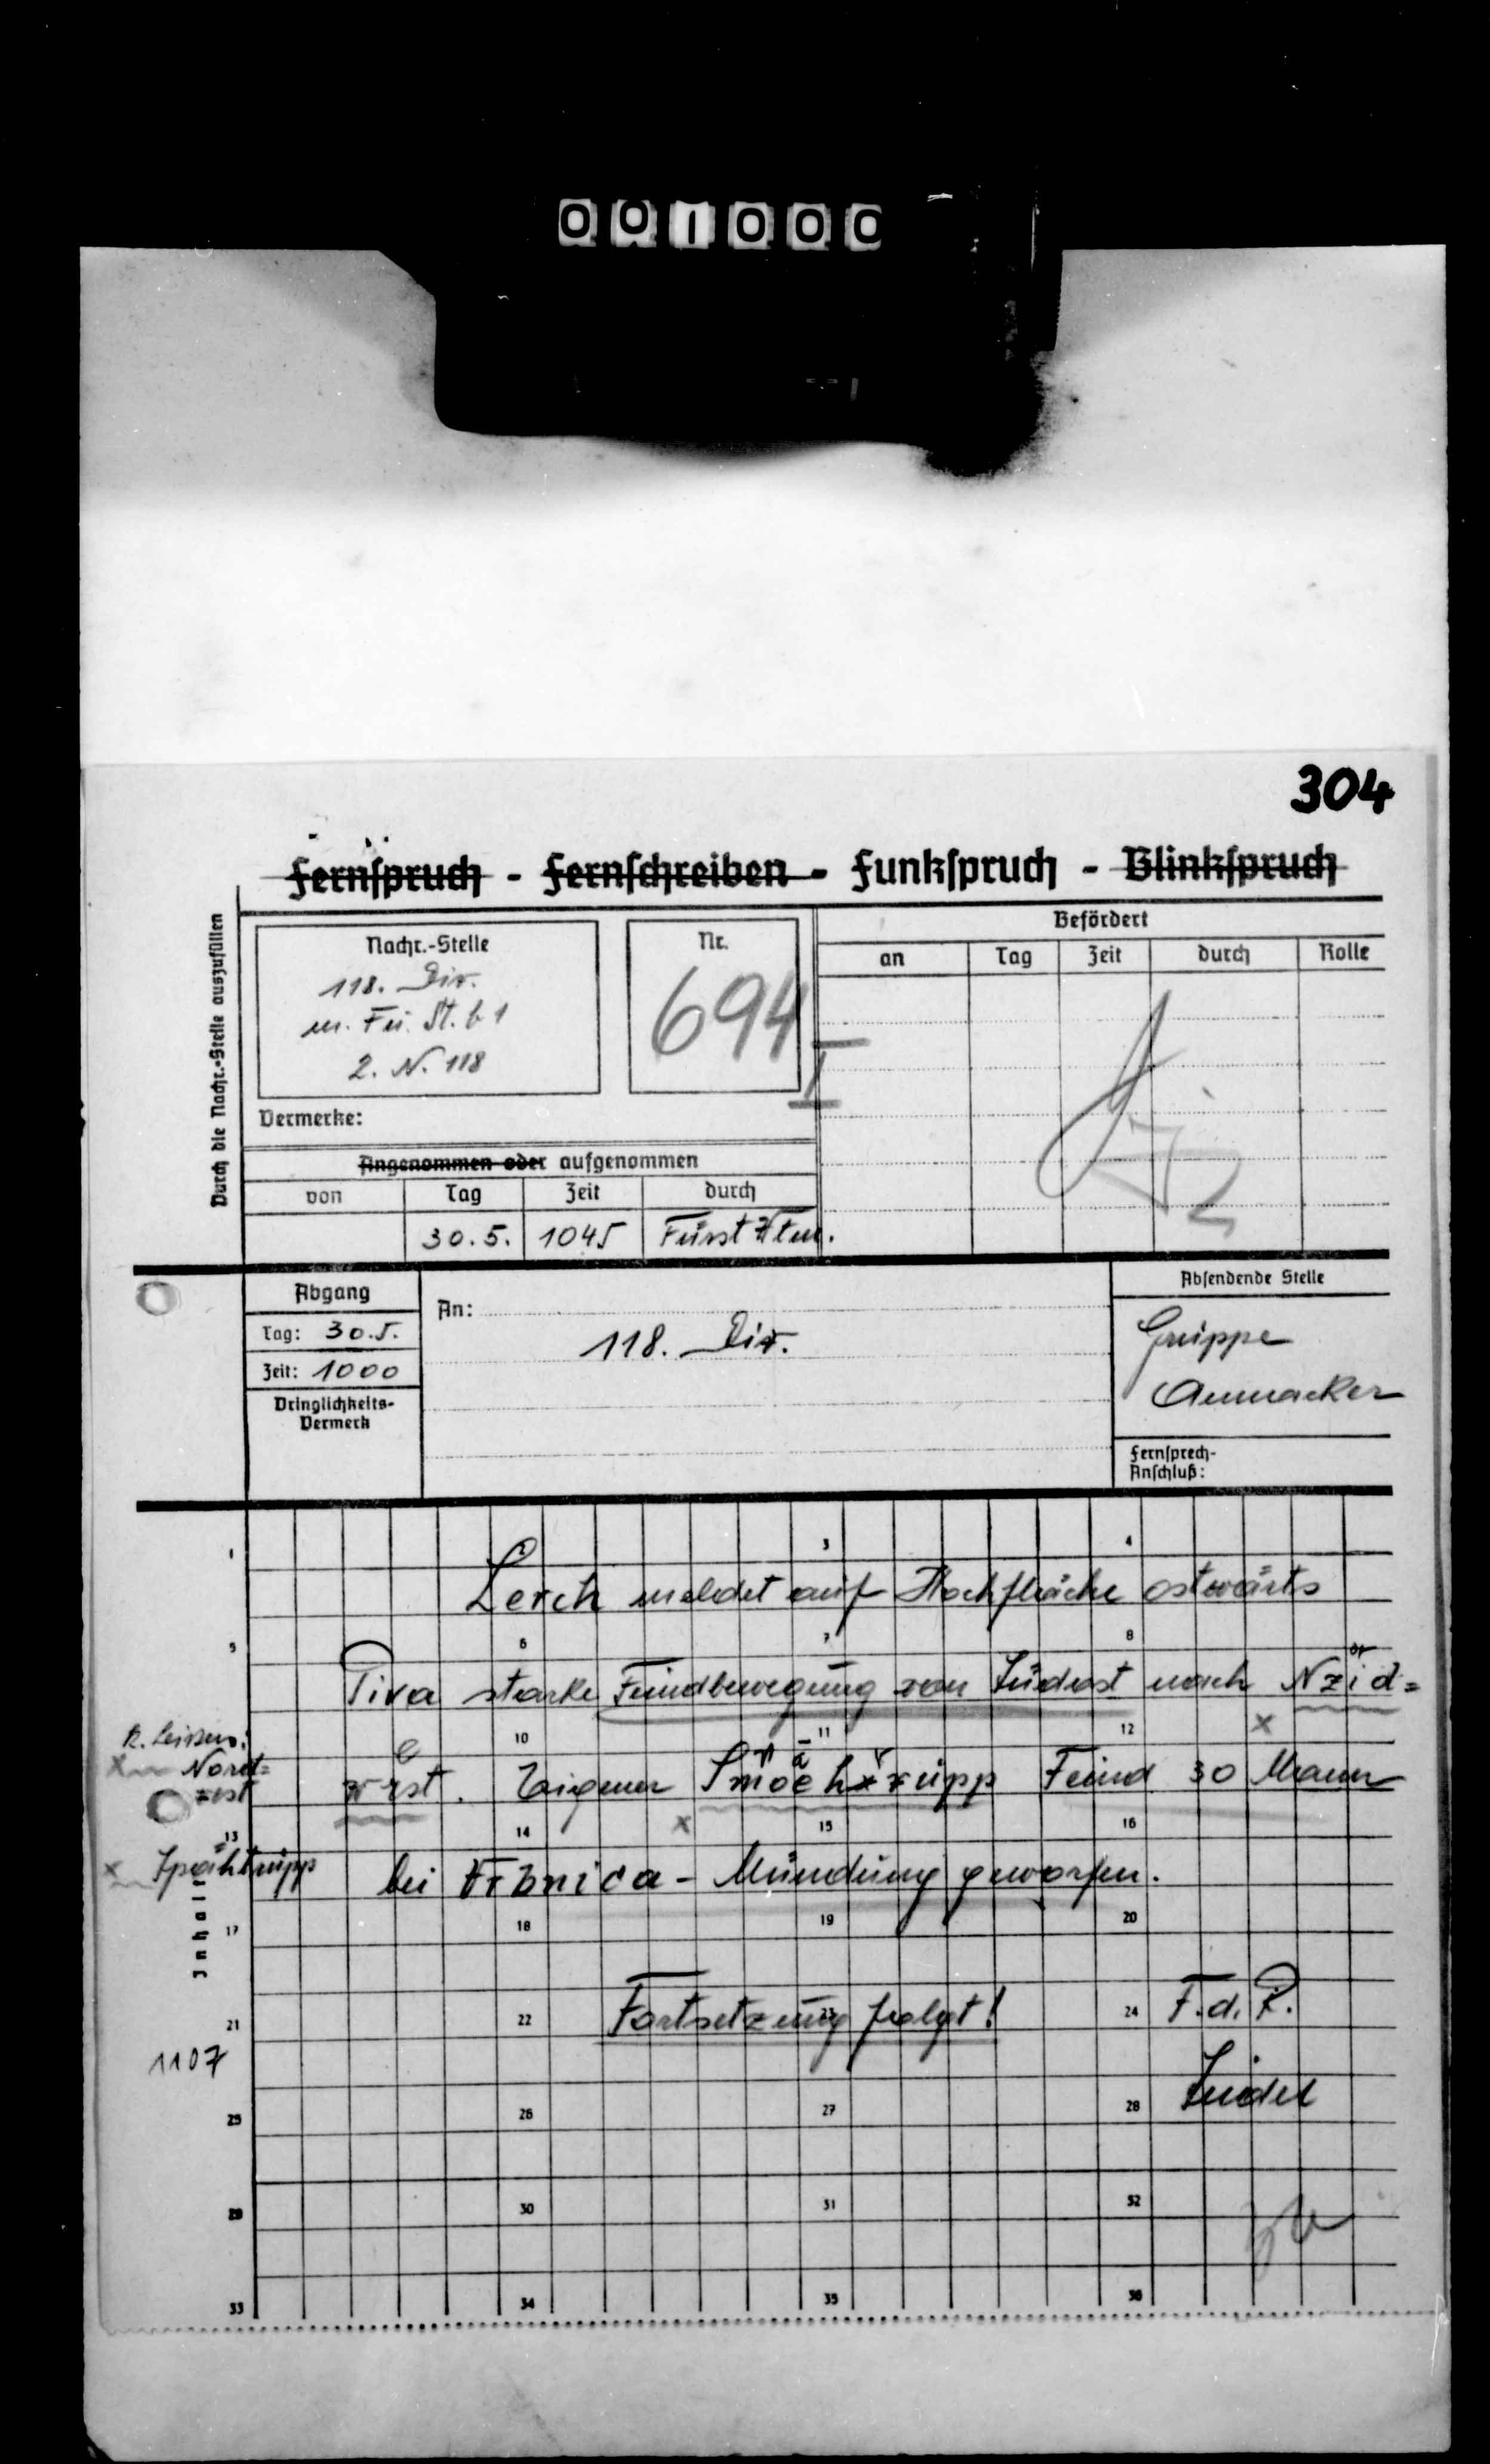 001000
304
Fernspruch - Fernschreiben - Funkspruch - Blinkspruch
Durch die Nachr.-Stelle auszufüllen
Nachr.-Stelle
118. Div.
m. Fu. St. b 1
2. N. 118
Nr.
694
Befördert
an Tag Zeit durch Rolle
Vermerke:
Angenommen oder aufgenommen
von Tag Zeit durch
30.5. 1045
Abgang
Tag: 30.5.
Zeit: 1000
Dringlichkeits-
Vermerk
An:
118. Div.
Absendende Stelle
Gruppe
Annacker
Fernsprech-
Anschluß:
1 2 3 4
Lerch meldet auf Hochfläche ostwärts
5 6 7 8
Piva starke Feindbewegung von Südost nach Nzid=
10 11 12
x Nord=
west
west. Eigener Smöehxrupp Feind 30 Mann
13 14 15 16
x Spähtrupp
bei Vrbnica - Mündung geworfen.
Inhalt
17 18 19 20
Fortsetzung folgt! F.d.R.
21 22 23 24
1107
Seidel
25 26 27 28
29 30 31 32
33 34 35 36